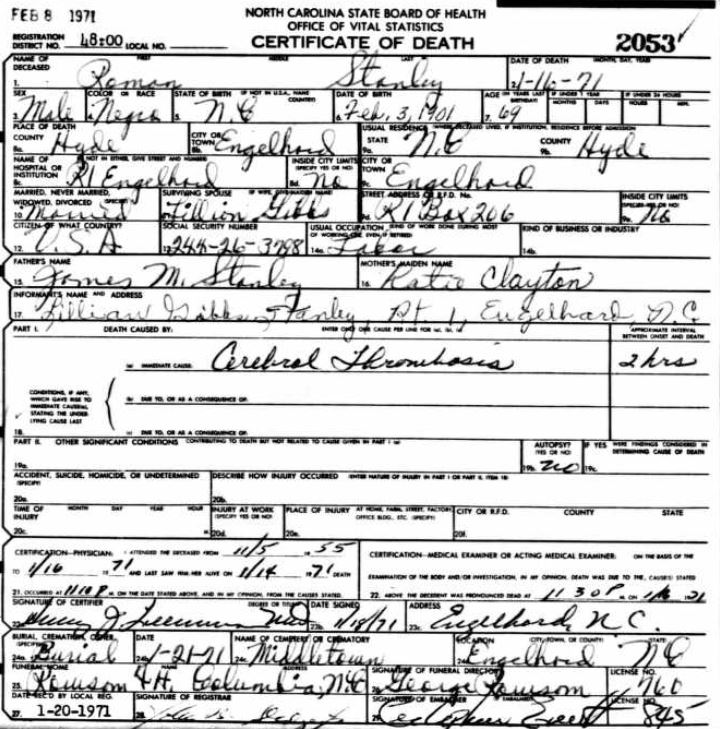 FEB 8 1971
NORTH CAROLINA STATE BOARD OF HEALTH
OFFICE OF VITAL STATISTICS
REGISTRATION DISTRICT NO. 48:00 LOCAL NO. CERTIFICATE OF DEATH 2053
NAME OF DECEASED FIRST MIDDLE LAST DATE OF DEATH MONTH, DAY, YEAR
1. Roman Stanley 2. 1-16-71
SEX COLOR OR RACE STATE OF BIRTH (IF NOT IN U.S.A., NAME COUNTRY) DATE OF BIRTH AGE (IN YEARS LAST BIRTHDAY) IF UNDER 1 YEAR MONTHS DAYS IF UNDER 24 HOURS HOURS MIN.
3. Male 4. Negro 5. N.C 6. Feb. 3, 1901 7. 69
PLACE OF DEATH CITY OR TOWN USUAL RESIDENCE (WHERE DECEASED LIVED, IF INSTITUTION, RESIDENCE BEFORE ADMISSION)
COUNTY Hyde Engelhard STATE N.C COUNTY Hyde
8a. 8b. 9a. 9b.
NAME OF HOSPITAL OR INSTITUTION (IF NOT IN EITHER, GIVE STREET AND NUMBER) INSIDE CITY LIMITS (SPECIFY YES OR NO) CITY OR TOWN
8c. R1 Engelhard 8d. No 9c. Engelhard
MARRIED, NEVER MARRIED, WIDOWED, DIVORCED (SPECIFY) SURVIVING SPOUSE (IF WIFE, GIVE MAIDEN NAME) STREET ADDRESS OR R.F.D. No. INSIDE CITY LIMITS (SPECIFY YES OR NO)
10. Married 11. Lillian Gibbs R1 Box 206 9e. No
CITIZEN OF WHAT COUNTRY? SOCIAL SECURITY NUMBER USUAL OCCUPATION (KIND OF WORK DONE DURING MOST OF WORKING LIFE, EVEN IF RETIRED) KIND OF BUSINESS OR INDUSTRY
12. U.S.A 13. 244-26-3798 14a. Labor 14b.
FATHER'S NAME MOTHER'S MAIDEN NAME
15. James M. Stanley 16. Katie Clayton
INFORMANT'S NAME AND ADDRESS
17. Lillian Gibbs Stanley, Rt. 1, Engelhard, N.C.
PART I. DEATH CAUSED BY: ENTER ONLY ONE CAUSE PER LINE FOR (a), (b), (c) APPROXIMATE INTERVAL BETWEEN ONSET AND DEATH
(a) IMMEDIATE CAUSE: Cerebral Thrombosis 2 hrs
CONDITIONS, IF ANY, WHICH GAVE RISE TO IMMEDIATE CAUSE(S), STATING THE UNDERLYING CAUSE LAST
(b) DUE TO, OR AS A CONSEQUENCE OF:
18. (c) DUE TO, OR AS A CONSEQUENCE OF:
PART II. OTHER SIGNIFICANT CONDITIONS CONTRIBUTING TO DEATH BUT NOT RELATED TO CAUSE GIVEN IN PART I (a) AUTOPSY? (YES OR NO) IF YES WERE FINDINGS CONSIDERED IN DETERMINING CAUSE OF DEATH
19a. 19b. no 19c.
ACCIDENT, SUICIDE, HOMICIDE, OR UNDETERMINED (SPECIFY) DESCRIBE HOW INJURY OCCURRED (ENTER NATURE OF INJURY IN PART I OR PART II, ITEM 18)
20a. 20b.
TIME OF INJURY MONTH DAY YEAR HOUR INJURY AT WORK (SPECIFY YES OR NO) PLACE OF INJURY AT HOME, FARM, STREET, FACTORY, OFFICE BLDG., ETC. (SPECIFY) CITY OR R.F.D. COUNTY STATE
20c. 20d. 20e. 20f.
CERTIFICATION-PHYSICIAN: I ATTENDED THE DECEASED FROM 11/5 1955 CERTIFICATION-MEDICAL EXAMINER OR ACTING MEDICAL EXAMINER: ON THE BASIS OF THE
TO 1/16 1971 AND LAST SAW HIM/HER ALIVE ON 1/14 1971 DEATH EXAMINATION OF THE BODY AND/OR INVESTIGATION, IN MY OPINION, DEATH WAS DUE TO THE, CAUSE(S) STATED
21. OCCURRED AT 1110 P M. ON THE DATE STATED ABOVE, AND IN MY OPINION, FROM THE CAUSES STATED. 22. ABOVE THE DECEDENT WAS PRONOUNCED DEAD AT 11 30 P M. ON 1/16 1971
SIGNATURE OF CERTIFIER DEGREE OR TITLE DATE SIGNED ADDRESS
23a. 23b. 1/18/71 23c. Engelhard, N.C.
BURIAL, CREMATION, OTHER (SPECIFY) DATE NAME OF CEMETERY OR CREMATORY LOCATION (CITY, TOWN, OR COUNTY) STATE
24a. Burial 24b. 1-21-71 24c. Middletown 24d. Engelhard N.C
FUNERAL HOME NAME ADDRESS SIGNATURE OF FUNERAL DIRECTOR LICENSE NO.
25. Rowsom F.H. Columbia, N.C 26. George Rowsom 760
DATE REC'D BY LOCAL REG. SIGNATURE OF REGISTRAR SIGNATURE OF EMBALMER LICENSE NO.
27. 1-20-1971 28. 29. 845